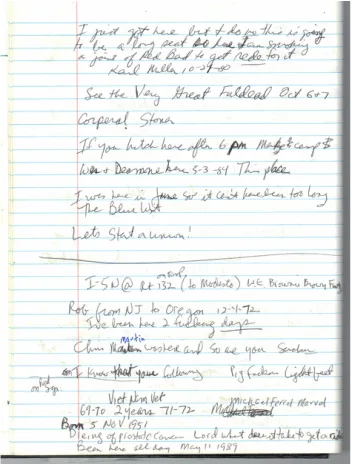 I just got here but I do this is going
to be a long seat so here I am smoking
a joint of Red Bad to get redo for it
Karl Miller 10-29-80
See the Very Great Fuldead Oct 6+7
Corperal Stoner
If you hitch here after 6 pm camp
Wes + Deonne here 5-3-84 This place
I was here in June so it can't have been too long
The Blue
Lets Start a union!
on road
I-5 N @ Rt 132 (to Modesto) W.E. Brownie Brown
Rob from NJ to Oregon 12-4-72
I've been here 2 fucking days
Martin
Chris washed and so are you
I Know that your following Pig Fuckin Lightfeet
on
Viet Nam Vet
69-70 2 years 71-72 Michael Forrest
Born 5 NOV 1951
Dieing of prostate Cancer Lord what does it take to get a ride
Been here all day May 11 1989